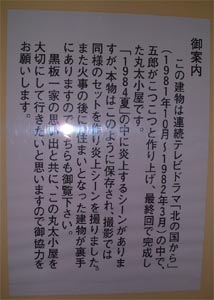 御案内
この建物は連続テレビドラマ「北の国から」
(1981年10月〜1982年3月)の中で、
五郎がこつこつと作り上げ、最終回で完成し
た丸太小屋です。
「1984夏」の中に炎上するシーンがありま
すが、本物はこのように保存され、撮影では
同様のセットを作り炎上シーンを撮りました。
また火事の後に仮住まいとなった建物が裏手
にありますのでそちらも御覧下さい。
黒板一家の思い出と共に、この丸太小屋を
大切にして行きたいと思いますので御協力を
お願いします。